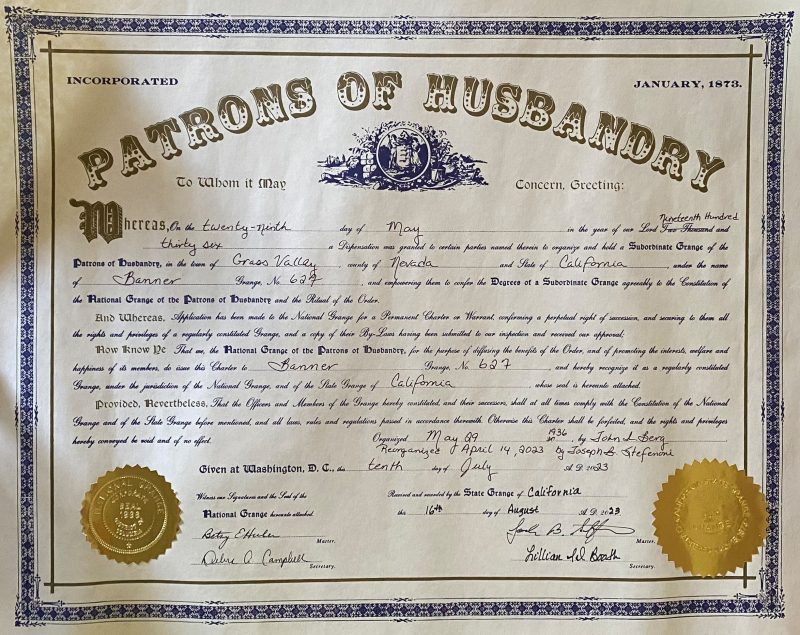 INCORPORATED JANUARY, 1873.
PATRONS OF HUSBANDRY
To Whom it May Concern, Greeting:
Nineteenth Hundred
Whereas, On the twenty-ninth day of May in the year of our Lord Two Thousand and
thirty six a Dispensation was granted to certain parties named therein to organize and hold a Subordinate Grange of the
Patrons of Husbandry, in the town of Grass Valley, county of Nevada and State of California, under the name
of Banner Grange, No. 627, and empowering them to confer the Degrees of a Subordinate Grange agreeably to the Constitution of
the National Grange of the Patrons of Husbandry and the Ritual of the Order.
And Whereas, Application has been made to the National Grange for a Permanent Charter or Warrant, confirming a perpetual right of succession, and securing to them all
the rights and privileges of a regularly constituted Grange, and a copy of their By-Laws having been submitted to our inspection and received our approval;
Now Know Ye That we, the National Grange of the Patrons of Husbandry, for the purpose of diffusing the benefits of the Order, and of promoting the interests, welfare and
happiness of its members, do issue this Charter to Banner Grange, No. 627, and hereby recognize it as a regularly constituted
Grange, under the jurisdiction of the National Grange, and of the State Grange of California whose seal is hereunto attached.
Provided, Nevertheless, That the Officers and Members of the Grange hereby constituted, and their successors, shall at all times comply with the Constitution of the National
Grange and of the State Grange before mentioned, and all laws, rules and regulations passed in accordance therewith. Otherwise this Charter shall be forfeited, and the rights and privileges
hereby conveyed be void and of no effect.
Organized May 29 1936, by John L Berg
Reorganized April 14, 2023 by Joseph B. Stefenoni
Given at Washington, D. C., this tenth day of July A. D. 2023
Witness our Signatures and the Seal of the
National Grange hereunto attached.
Received and recorded by the State Grange of California
this 16th day of August A. D. 2023
Betsy E Huber Master.
Debra A. Campbell Secretary.
Master.
Lillian Booth Secretary.
NATIONAL GRANGE
SEAL